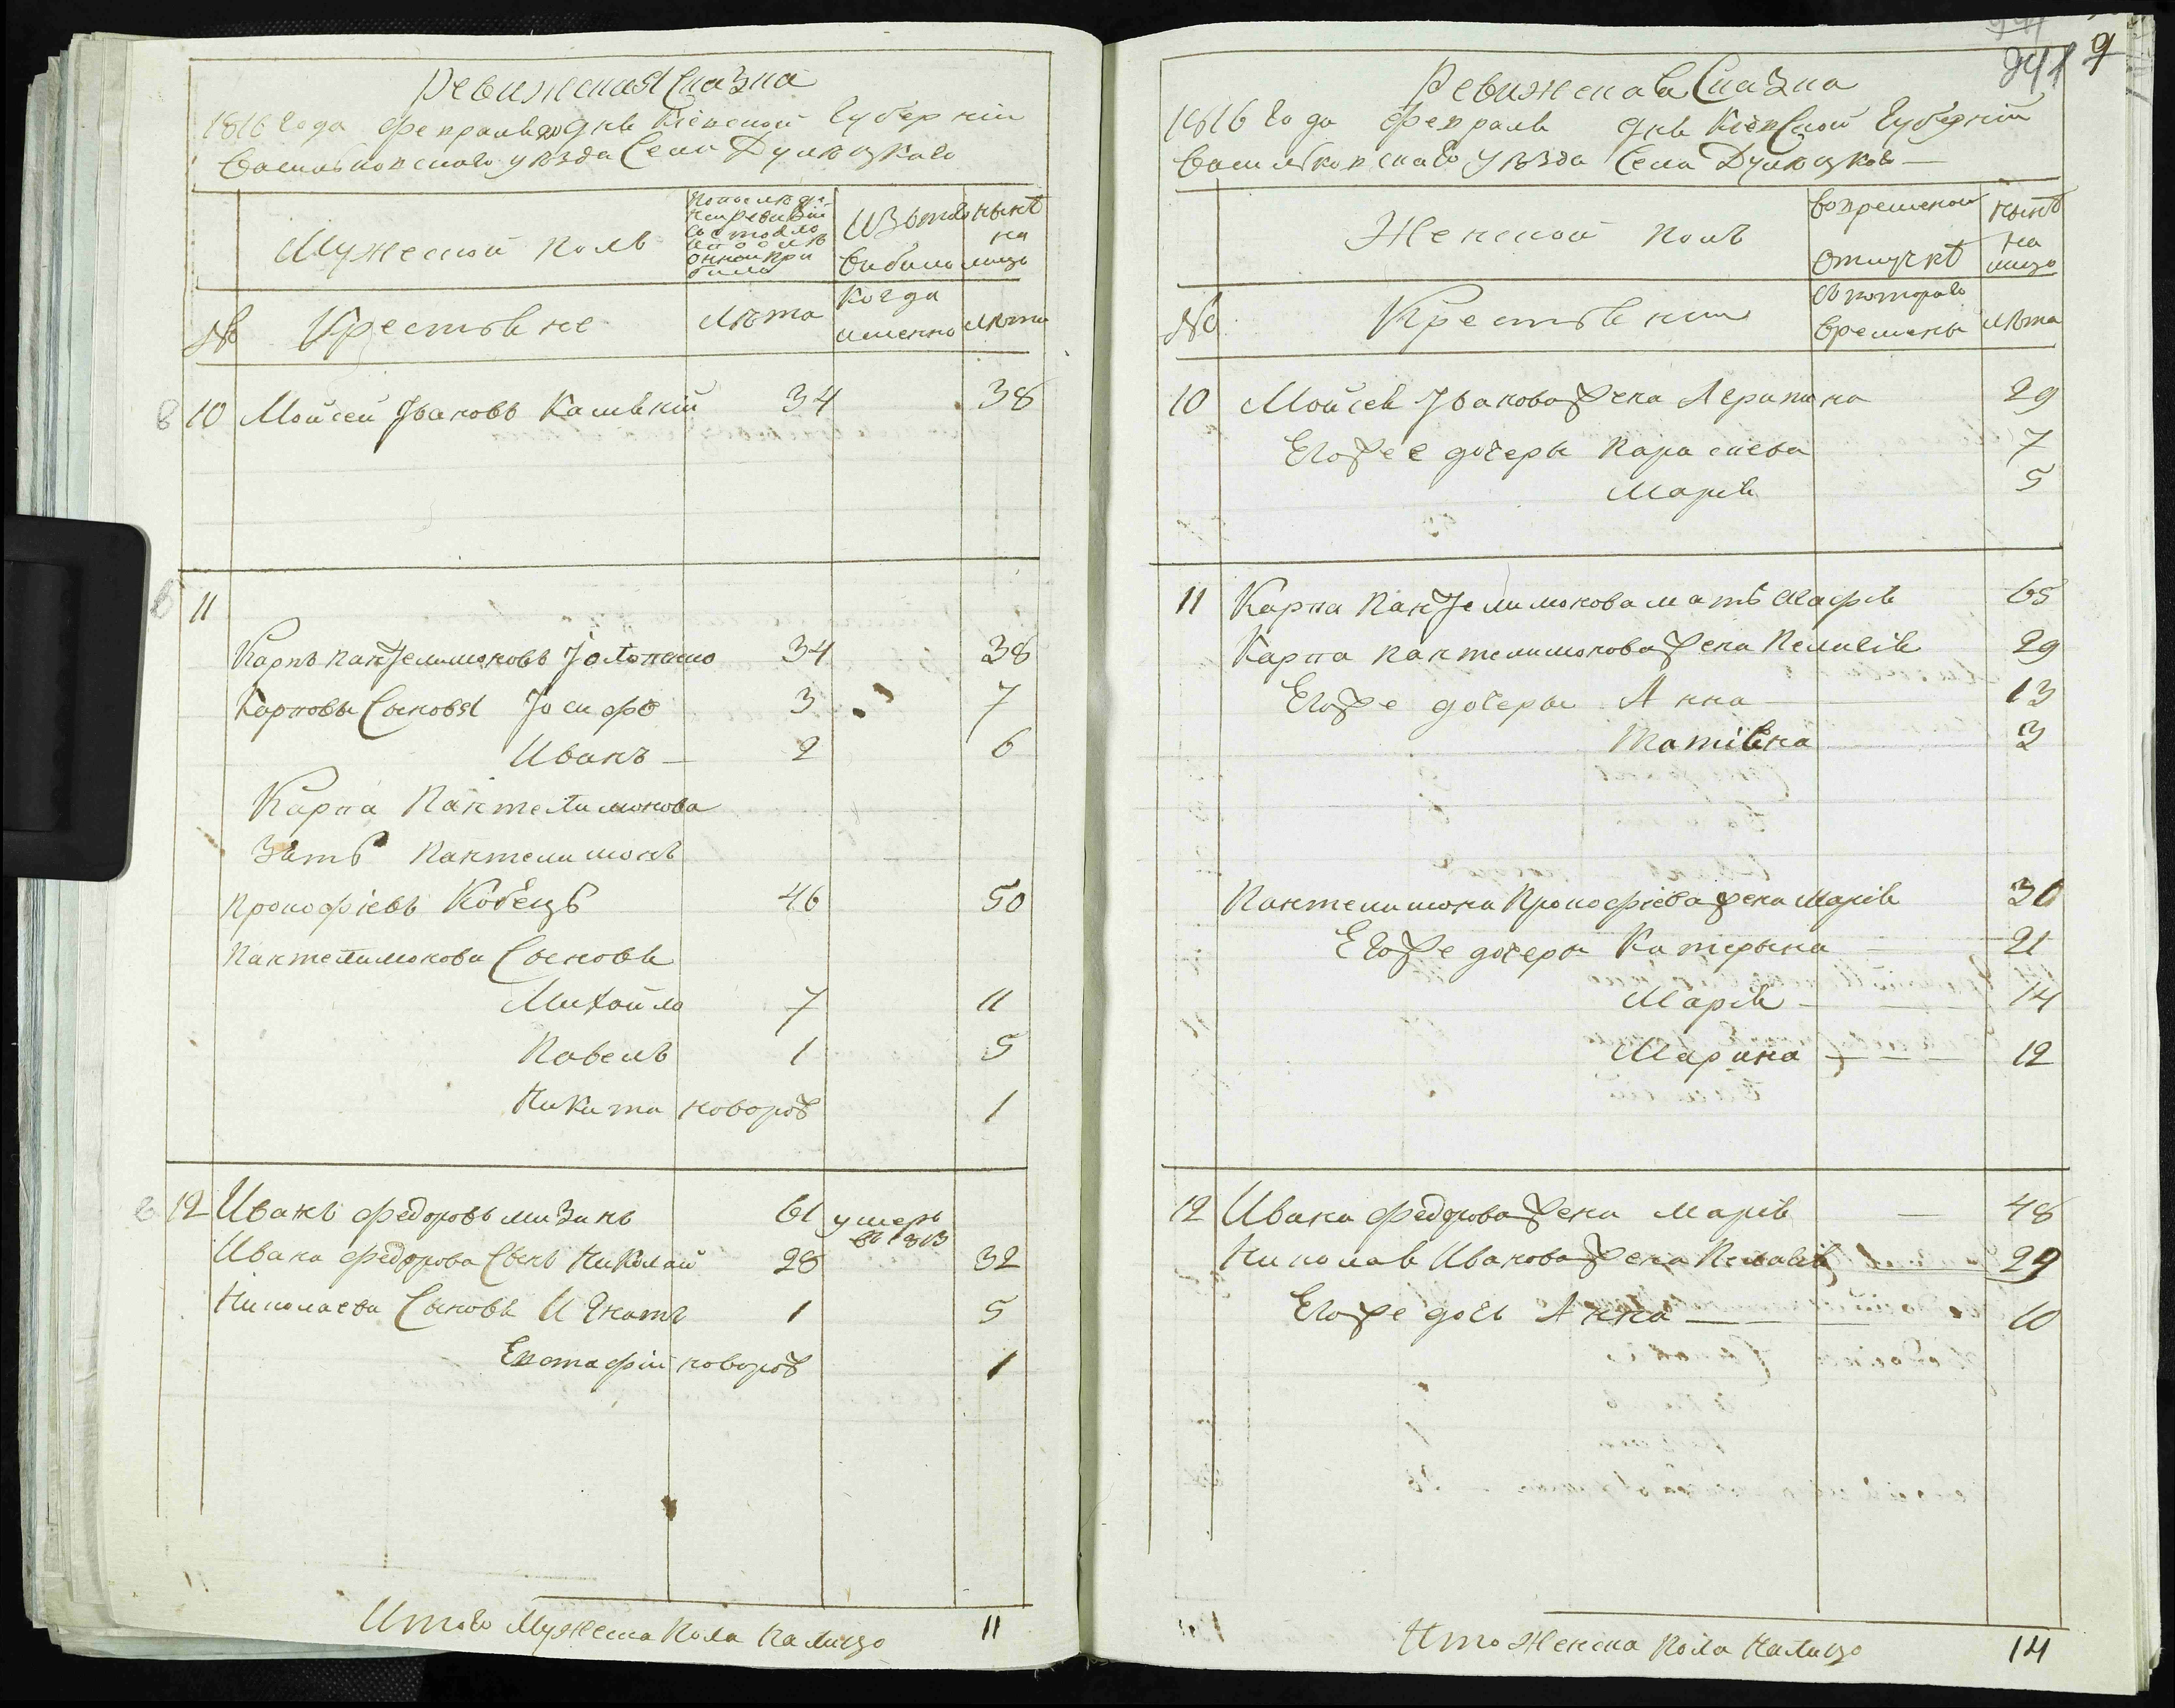 Ревижская Сказка
1816 Года февраля дня Кіевской Губерніи
Василковскаго уѣзда Села Дулюцкаго
Мужеской полъ
Изътого
Выбило
нынѣ
на
лицо
№
Крестьяне
Лѣта
Когда
именно
Лѣта
10 Мойсей Јвановъ 34 38
11
Карпъ Пантелимоновъ 34 38
Карповы Сыновья Јосифъ 3 7
Иванъ 2 6
Карпа Пантелимонова
Зять Пантелимонъ
Прокофіевъ Кобецъ 46 50
Пантелимонова Сыновя
Михайло 7 11
Павелъ 1 5
Никита новорож 1
12 Иванъ Федоровъ Мизинъ 61 умеръ
въ 1813
Ивана Федорова Сынъ Николай 28 32
Николаева Сыновя Игнатъ 1 5
Евстафій новорож 1
Итого Мужеска Пола Налицо 11
9
Ревижская Сказка
1816 Года февраля дня Кіевской Губерніи
Василковскаго Уѣзда Села Дулюцков
Женской полъ
Вовременной
Отлучкѣ
нынѣ
на
лицо
№
Крестьянки
Съ котораго
Времены
Лѣта
10 Мойсея Јванова жена 29
Егоже дочеры Параскева 7
Марія 5
11 Карпа Пантелимонова мать Агафія 65
Карпа Пантелимонова жена Пелагія 29
Егоже дочеры Анна 13
Татіяна 3
Пантелимона Прокофіева жена Марія 36
Егоже дочеры Катерына 21
Марія 14
Марина 12
12 Ивана Федорова жена Марія 48
Николая Иванова жена Пелагія 29
Егоже дочь Анна 10
Итго Женска Пола Налицо 14